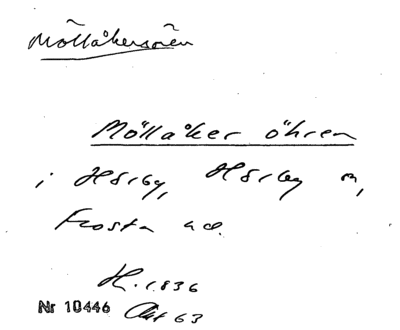 Mölläkersören
Mölläker öhren
i Hörby, Hörby sn,
Frosta hd.
H. 1836
Nr 10446 Akt 63